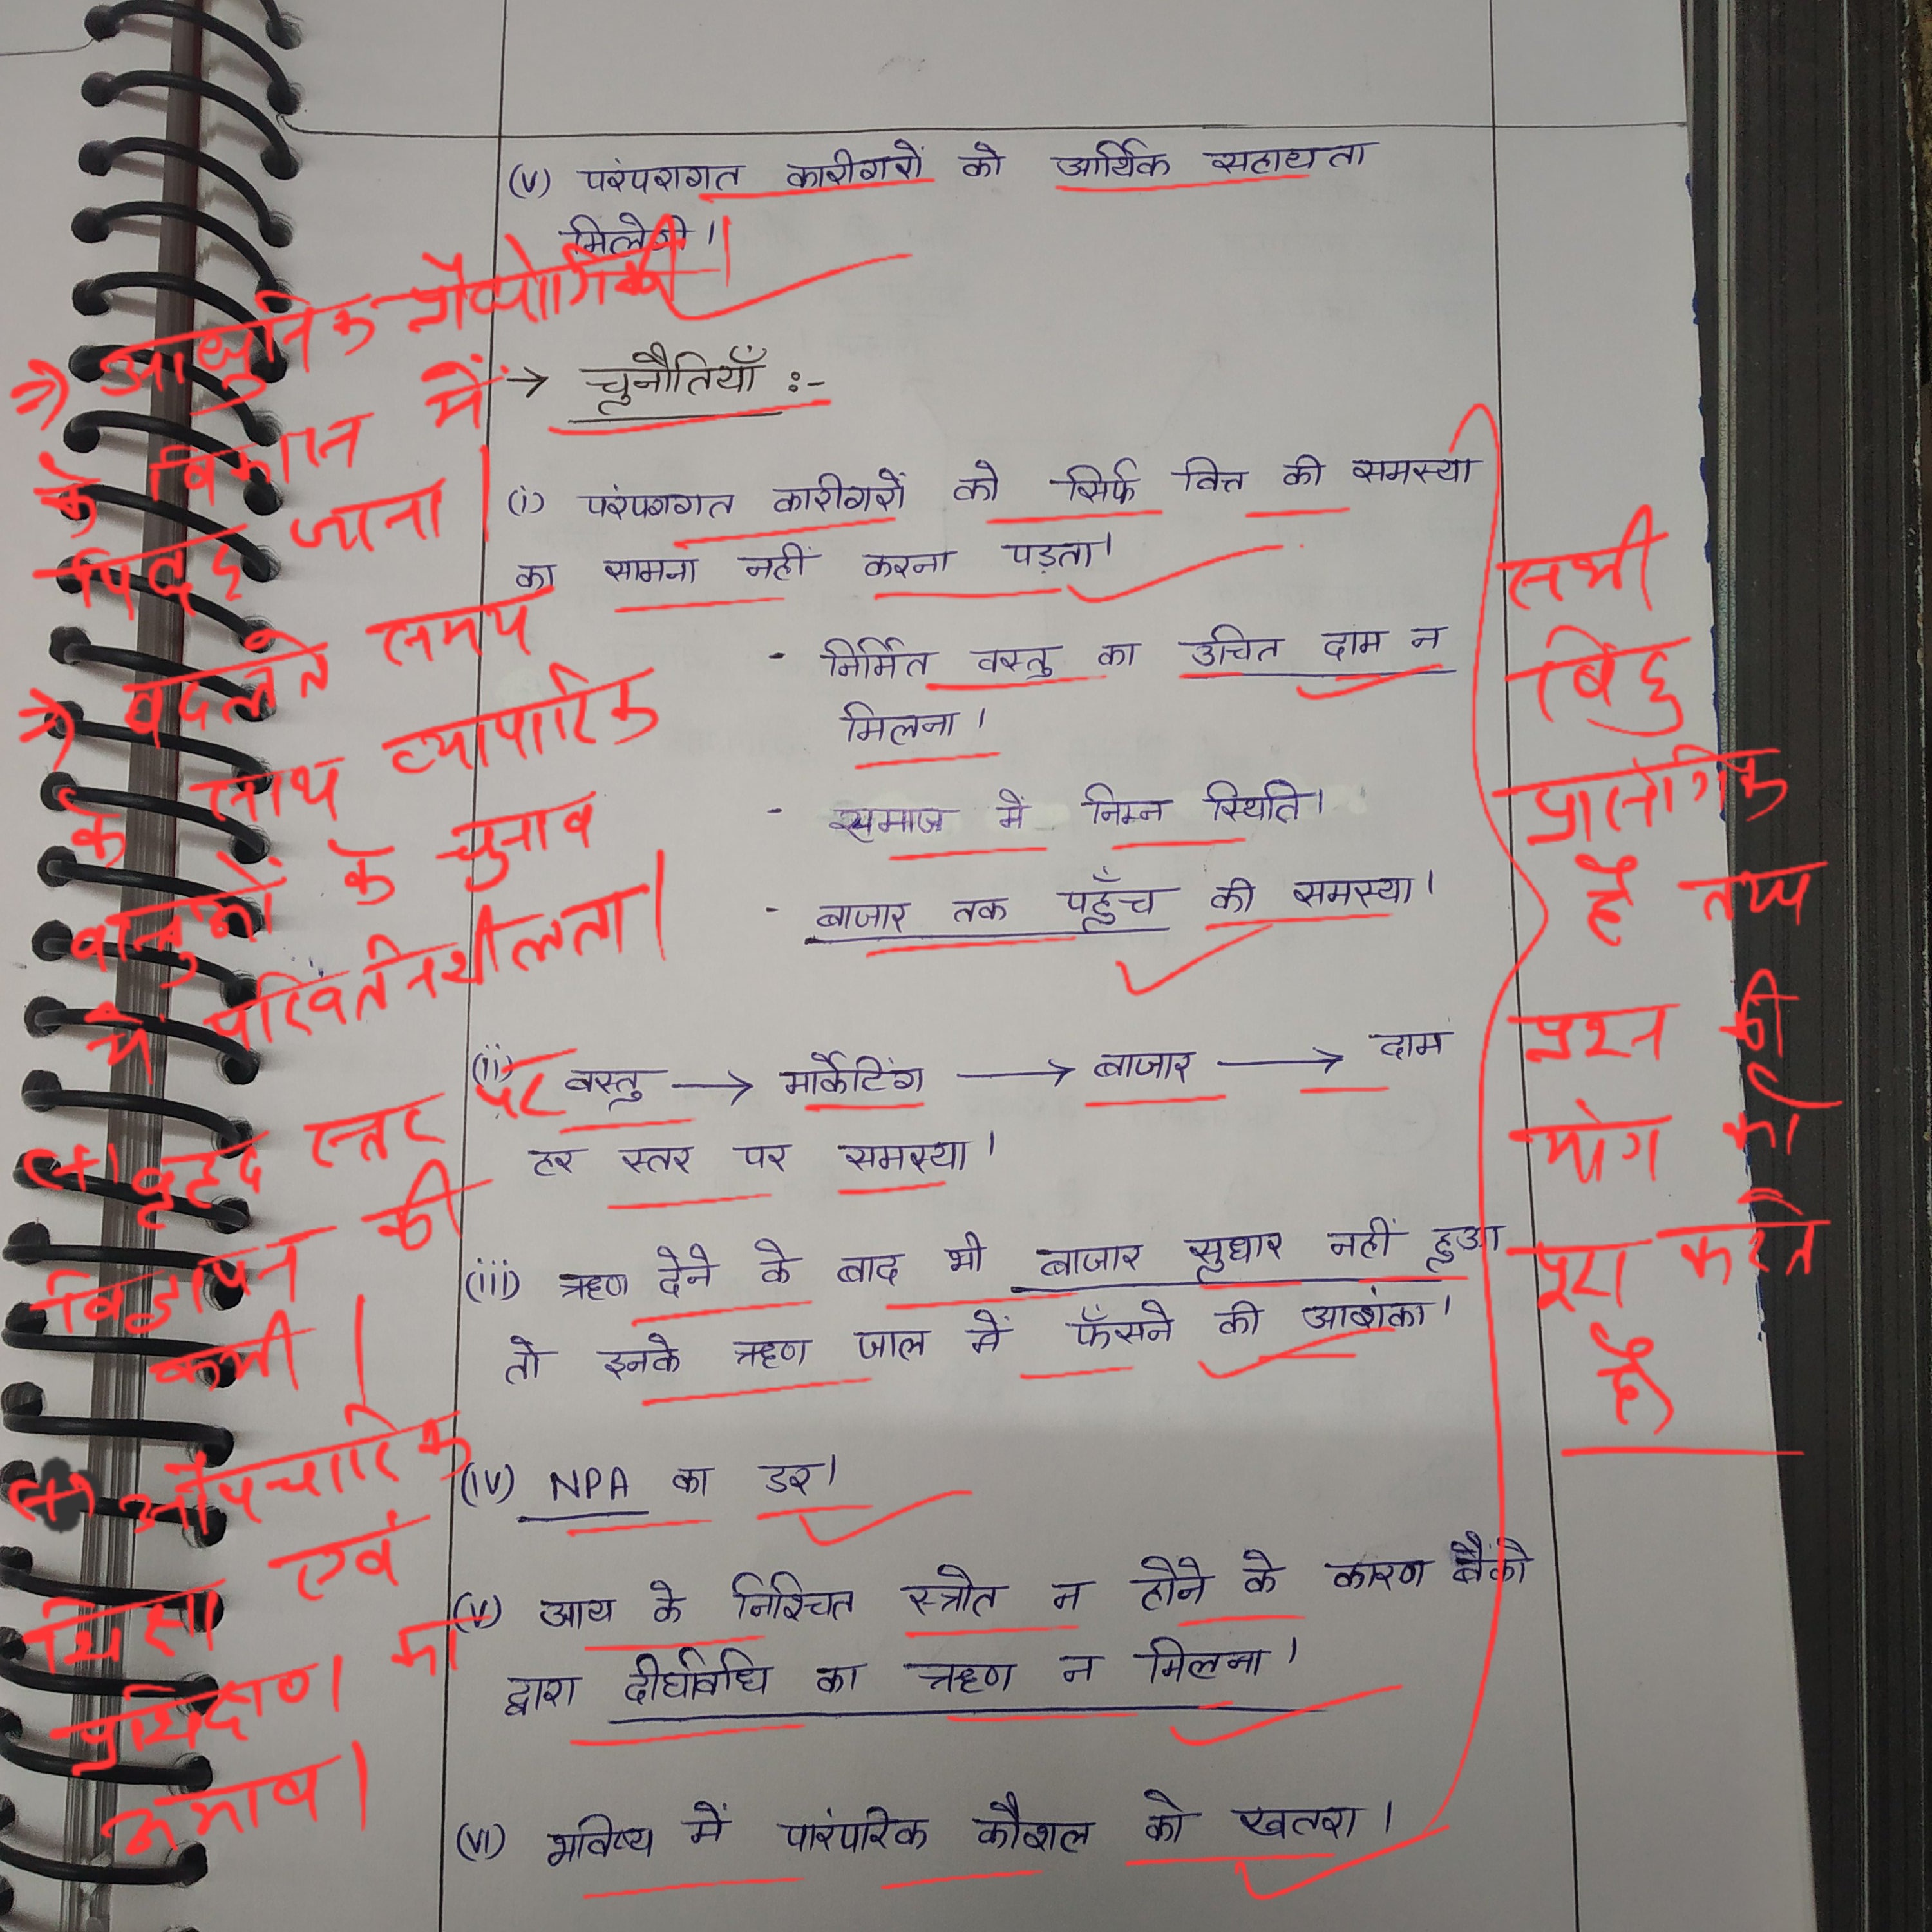 (v) परंपरागत कारीगरों को आर्थिक सहायता
मिलेगी।
→ चुनौतियाँ :-
(i) परंपरागत कारीगरों को सिर्फ वित्त की समस्या
का सामना नहीं करना पड़ता।
- निर्मित वस्तु का उचित दाम न
मिलना।
- समाज में निम्न स्थिति।
- बाजार तक पहुँच की समस्या।
(ii) वस्तु → मार्केटिंग → बाजार → दाम
हर स्तर पर समस्या।
(iii) ऋण देने के बाद भी बाजार सुधार नहीं हुआ
तो इनके ऋण जाल में फँसने की आशंका।
(iv) NPA का डर।
(v) आय के निश्चित स्त्रोत न होने के कारण बैंको
द्वारा दीर्घावधि का ऋण न मिलना।
(vi) भविष्य में पारंपरिक कौशल को खतरा।
⇒ आधुनिक प्रौद्योगिकी
के विकास में
पिछड़ जाना।
⇒ बदलते समय
के साथ व्यापारिक
वस्तुओं के चुनाव
में परिवर्तनशीलता।
(+) वृहद स्तर पर
विज्ञापन की
कमी।
(+) औपचारिक
शिक्षा एवं
प्रशिक्षण का
अभाव।
सभी
बिंदु
प्रासंगिक
है तथा
प्रश्न की
मांग को
पूरा करते
है